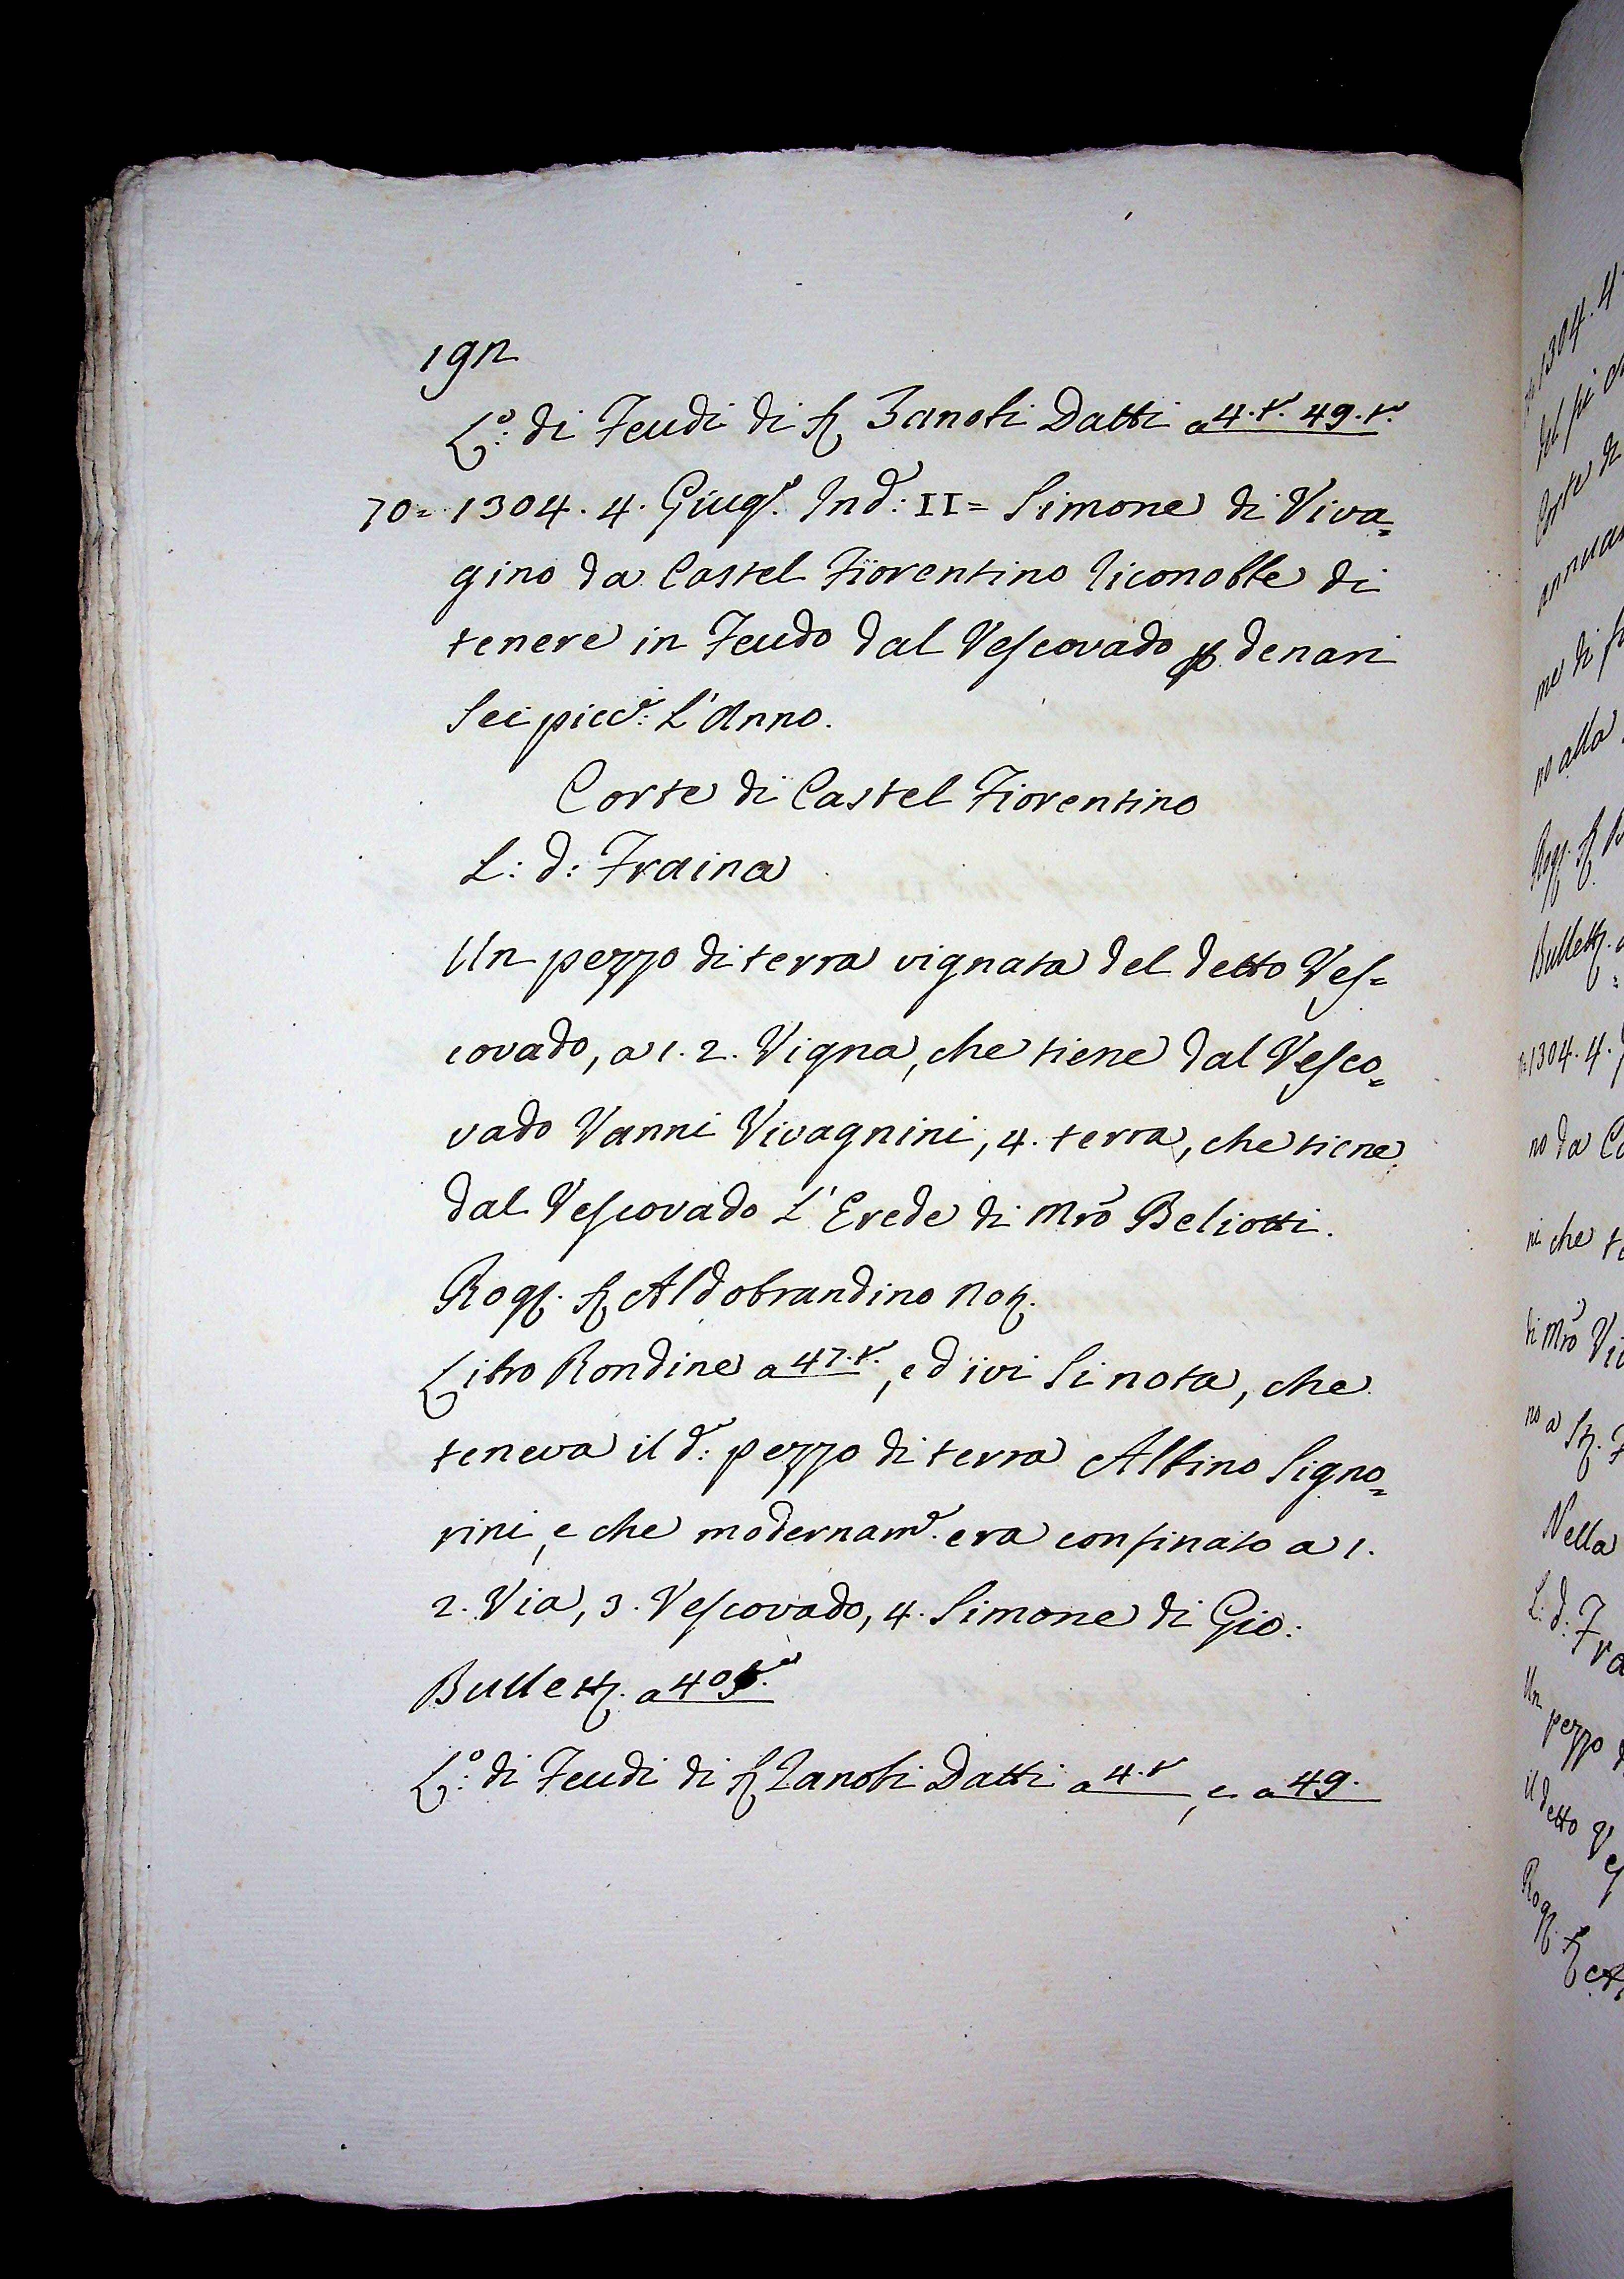 192
L:º di Feudi di S. Zanobi Datti a 4.t. 49.t.
70= 1304. 4. Giug.º Ind.: II= Simone di Viva=
gino da Castel Fiorentino riconobbe di
tenere in Feudo dal Vescovado p denari
sei picc.: L'Anno.
Corte di Castel Fiorentino
L: d: Fraina
Un pezzo di terra vignata del detto Ves=
covado, a 1. 2. Vigna, che tiene dal Vesco=
vado Vanni Vivagnini, 4. terra, che tiene
dal Vescovado L'Erede di Mro Beliotti.
Rog. S. Aldobrandino Not.
Libro Rondine a 47.t., ed ivi si nota, che
teneva il d.: pezzo di terra Albino Signo=
rini, e che modernam.e era confinato a 1.
2. Via, 3. Vescovado, 4. Simone di Gio:
Bullett. a 40
L:º di Feudi di S. Zanobi Datti a 4.t, e a 49.
1304. 4
Corte di
annua
me di
no alla
Bullett.
1304. 4.
no da Ca
ni che
di Mro Vi
no a
Nella
L: d: Fra
Un pezzo
il detto Ves
Rog. S.